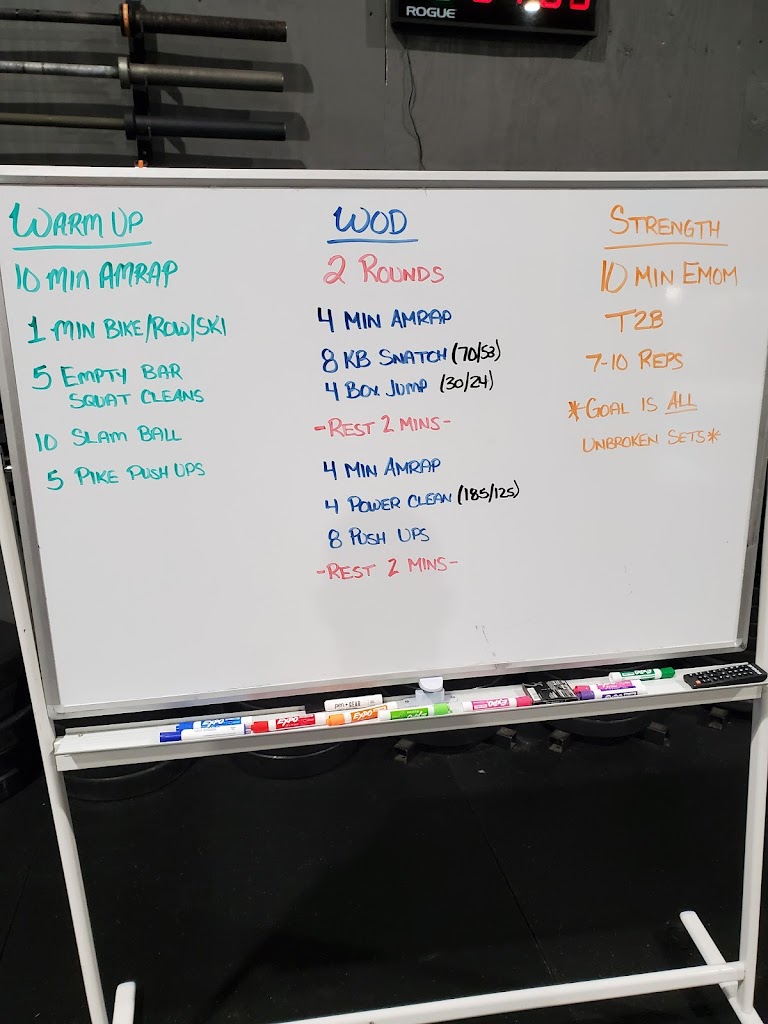 ROGUE
WARM UP
10 MIN AMRAP
1 MIN BIKE/ROW/SKI
5 EMPTY BAR
SQUAT CLEANS
10 SLAM BALL
5 PIKE PUSH UPS
WOD
2 ROUNDS
4 MIN AMRAP
8 KB SNATCH (70/53)
4 BOX JUMP (30/24)
-REST 2 MINS-
4 MIN AMRAP
4 POWER CLEAN (185/125)
8 PUSH UPS
-REST 2 MINS-
STRENGTH
10 MIN EMOM
T2B
7-10 REPS
*GOAL IS ALL
UNBROKEN SETS*
EXPO
EXPO
pen+GEAR
EXPO
EXPO